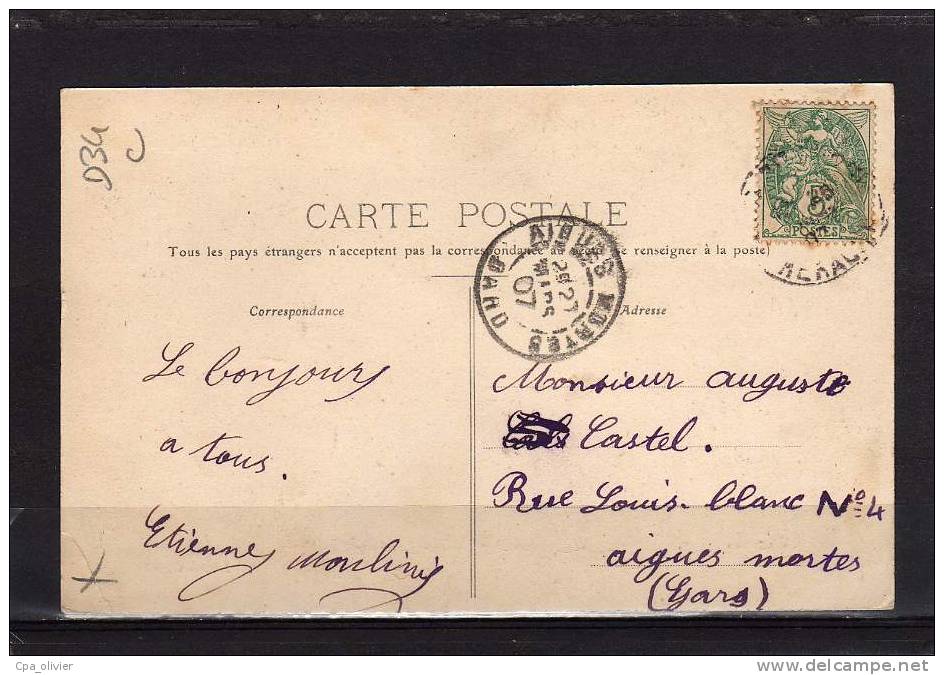 D34
C
CARTE POSTALE
Tous les pays étrangers n'acceptent pas la correspondance au se renseigner à la poste)
Correspondance
Adresse
AIGUES MORTES
GARD
29
MARS
07
POSTES
HERAULT
Le bonjour
a tous.
Etienne Moulinié
Monsieur auguste
Castel.
Rue Louis-blanc No 4
aigues mortes
(Gard)
Cpa_olivier
www.delcampe.net